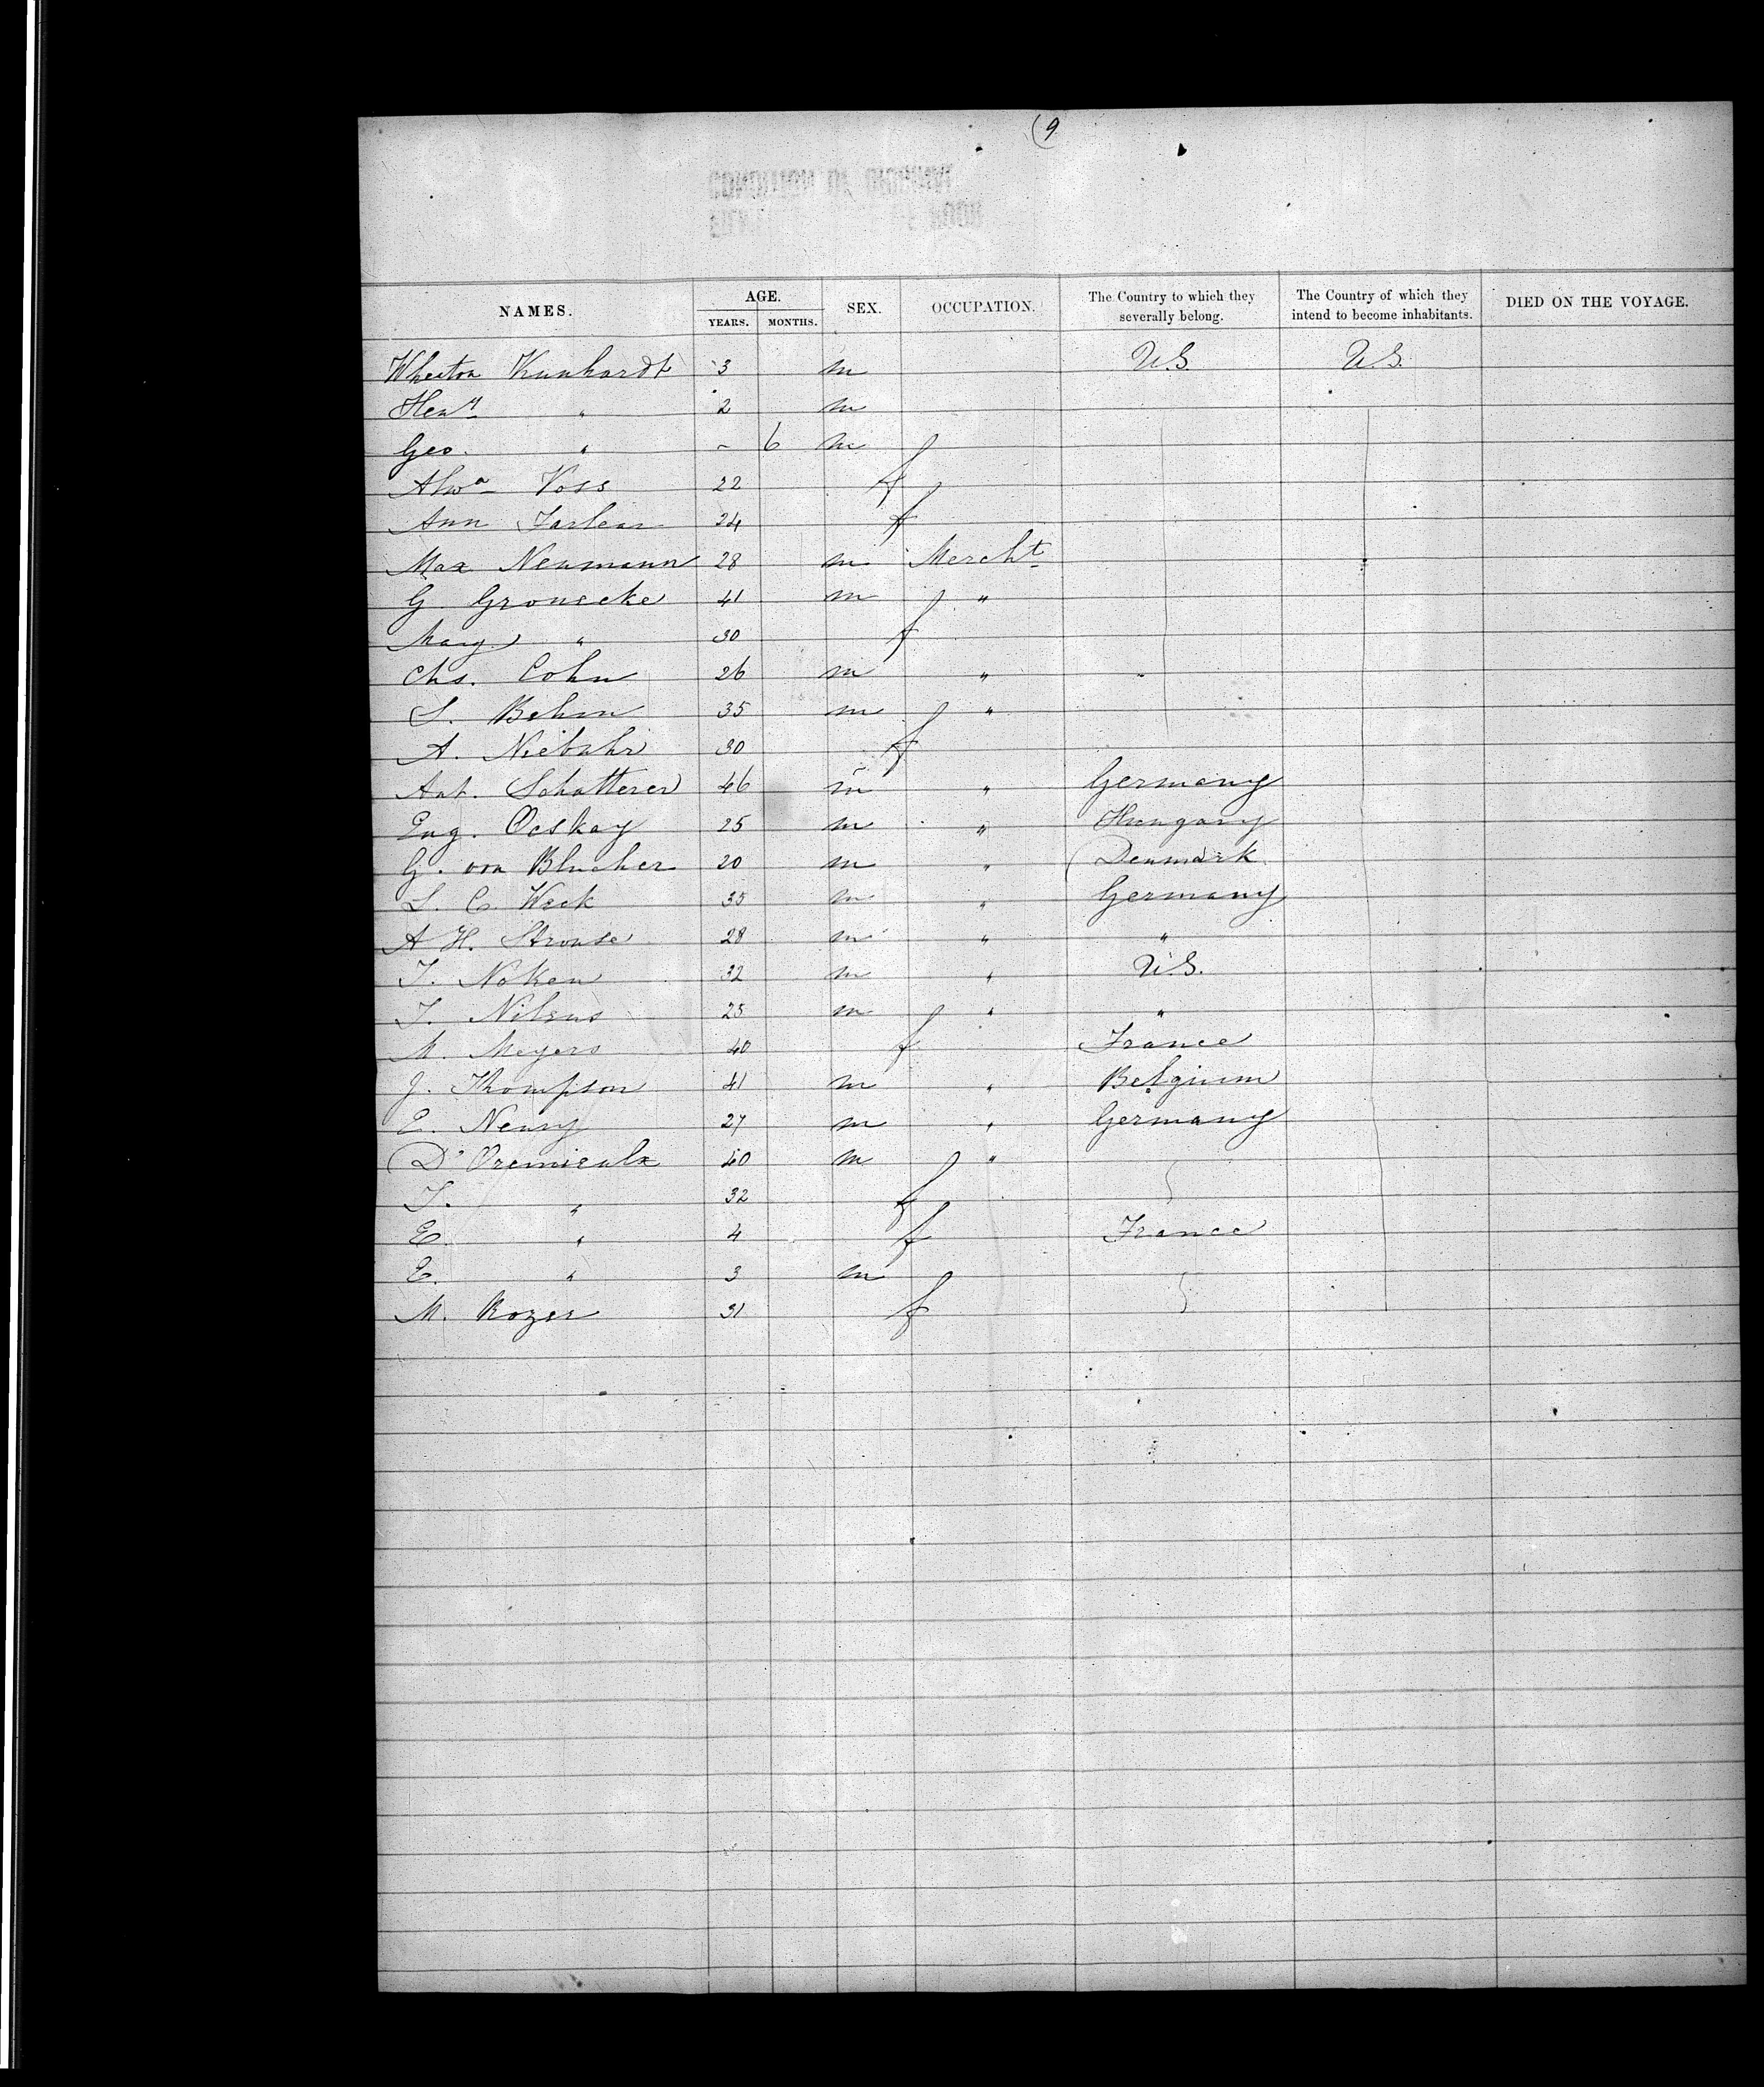 (9
NAMES. AGE. YEARS. MONTHS. SEX. OCCUPATION. The Country to which they severally belong. The Country of which they intend to become inhabitants. DIED ON THE VOYAGE.
Wheeton Kunhardt 3 m U.S. U.S.
Heny " 2 m
Geo. " - 6 m
Alwa Voss 22 f
Ann 24 f
Max Neumann 28 m Mercht
G. Gronecke 41 m "
Marg " 30 f
Chs. Cohn 26 m "
S. Behm 35 m "
A. Niebuhr 30 f
Ant. Schatterer 46 m " Germany
Eug. Ocskay 25 m " Hungary
G. von Blucher 20 m " Denmark
L. C. Weck 35 m " Germany
A H. Strouse 28 m " "
T. Noken 32 m " U.S.
T. Nilsus 25 m " "
M. Meyers 40 f France
J. Thompson 41 m " Belgium
E. Neury 27 m " Germany
D'Oremieulx 40 m "
T. " 32 f
E. " 4 f France
E. " 3 m
M. Rozer 31 f